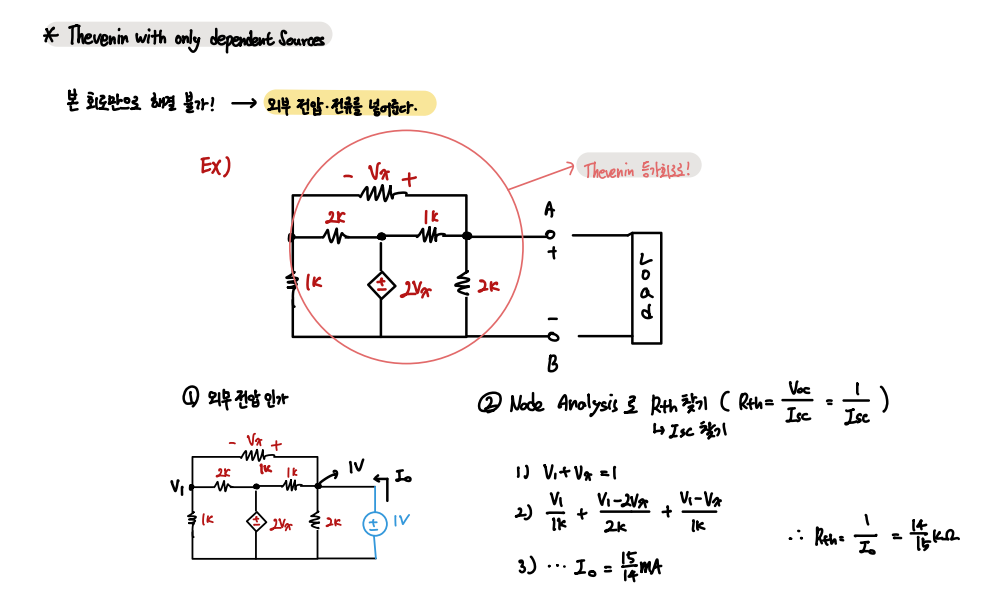 * Thevenin with only dependent Sources
본 회로만으로 해결 불가! → 외부 전압·전류를 넣어준다.
Ex)
Thevenin 등가회로로!
- Vπ +
2K
1K
A
+
1K
+
-
2Vπ
2K
Load
-
B
① 외부 전압 인가
- Vπ +
1K
2K
1K
1V
I₀
V₁
1K
+
-
2Vπ
2K
+
-
1V
② Node Analysis로 Rth 찾기 ( Rth = Voc/Isc = 1/Isc )
↳ Isc 찾기
1) V₁ + Vπ = 1
2) V₁/1K + V₁-2Vπ/2K + V₁-Vπ/1K
3) ··· I₀ = 15/14 mA
∴ Rth = 1/I₀ = 14/15 KΩ